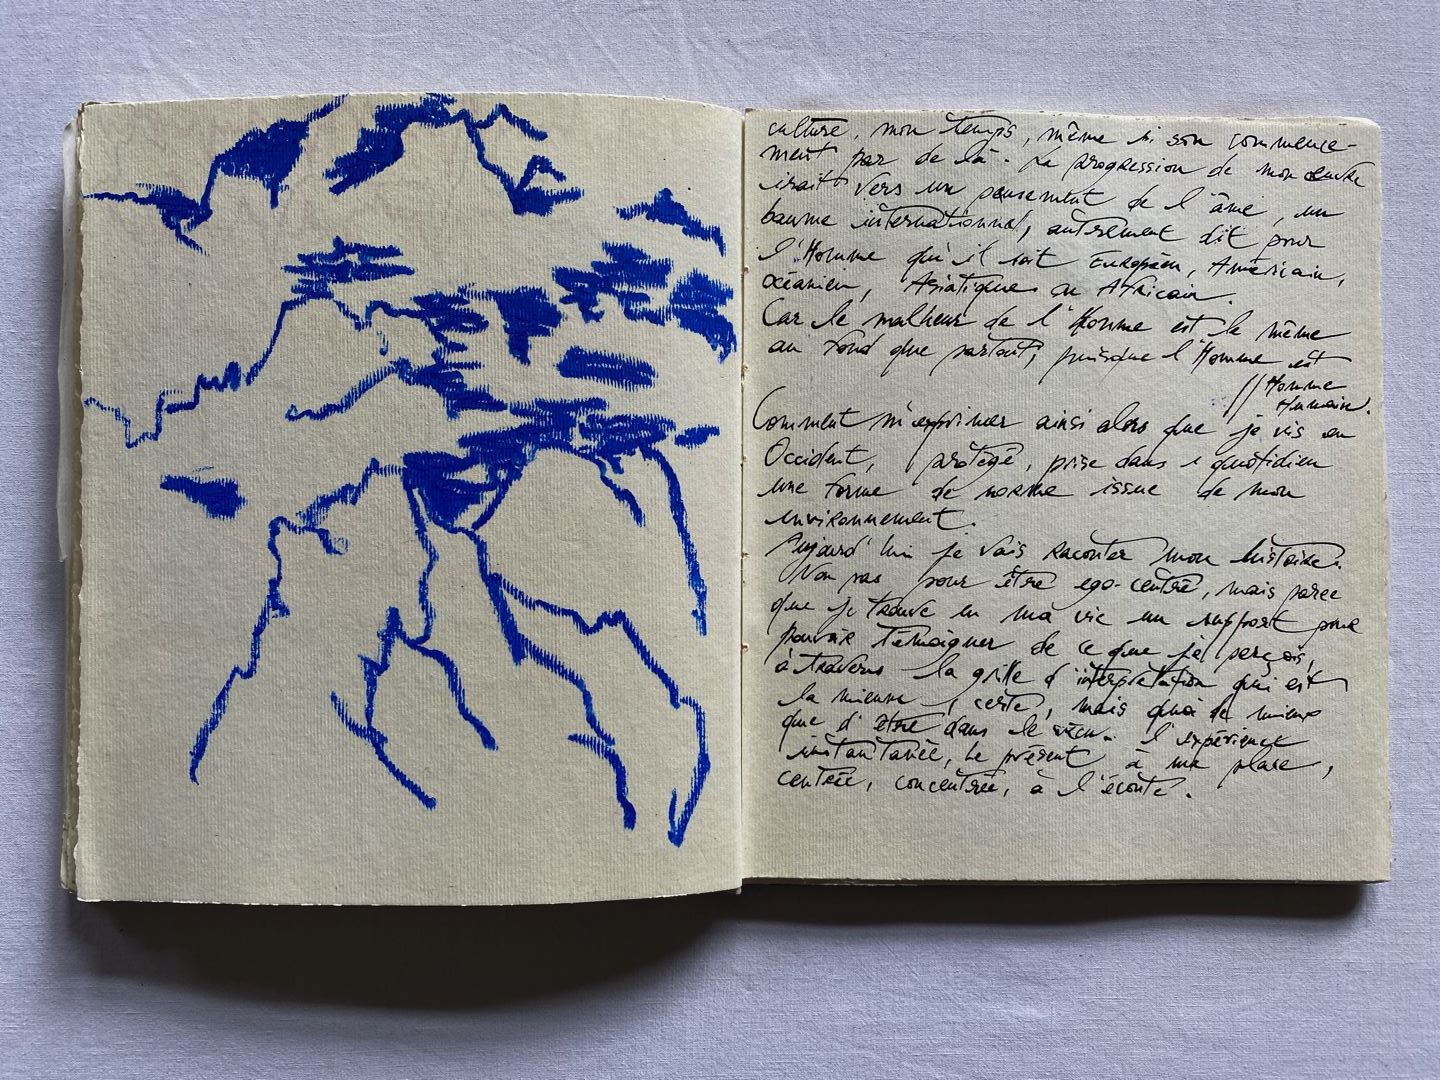 culture, mon temps, même si son commence-
ment par de là. La progression de mon œuvre
irait vers un pansement de l'âme, un
baume international, autrement dit pour
l'Homme qu'il soit Européen, Américain,
océanien, Asiatique ou Africain.
Car le malheur de l'Homme est le même
au fond que partout, puisque l'Homme est
// Homme
Humain.
Comment m'exprimer ainsi alors que je vis en
Occident, protégé, prise dans quotidien
une forme de norme issue de mon
environnement.
Aujourd'hui je vais raconter mon histoire.
Non pas pour être ego-centré, mais parce
que je trouve en ma vie un support pour
pouvoir témoigner de ce que je perçois,
à travers la grille d'interprétation qui est
la mienne, certe, mais quoi de mieux
que d'être dans le vécu. l'expérience
instantanée, le présent à ma place,
centrée, concentrée, à l'écoute.